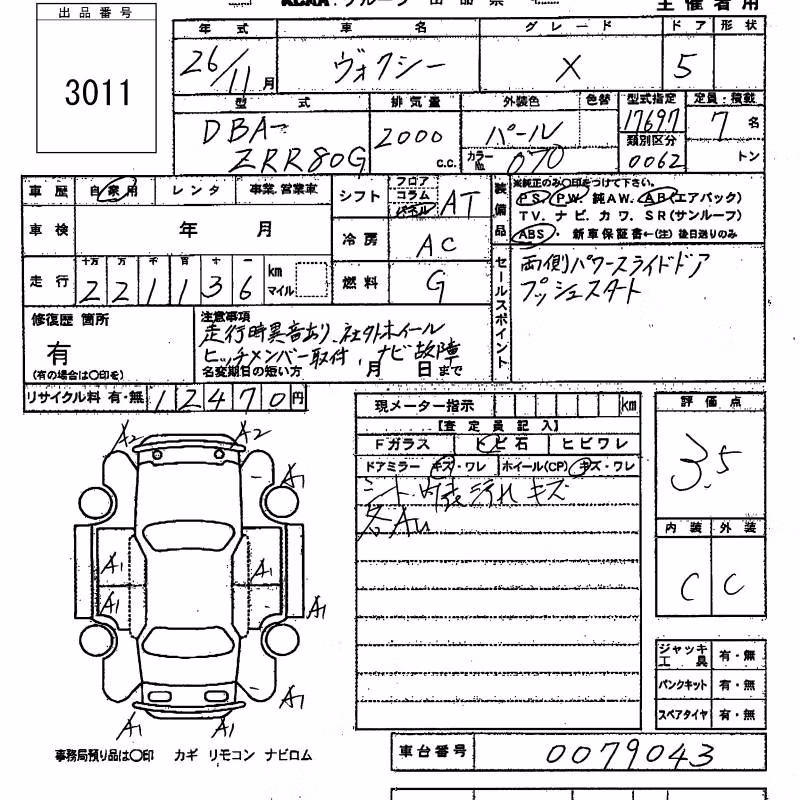 出品番号
3011
主催者用
年式 車名 グレード ドア 形状
26/11月 ヴォクシー X 5
型式 排気量 外装色 色替 型式指定 定員・積載
DBA-ZRR80G 2000 c.c. パール カラーNo. 070 17697 類別区分 0062 7名 トン
車歴 自家用 レンタ 事業.営業車
シフト フロア コラム パネル AT
装備品 ※純正のみ〇印をつけて下さい。
PS. PW. 純AW. AB(エアバック)
TV. ナビ. カワ. SR(サンルーフ)
ABS・ 新車保証書←(注) 後日送りのみ
車検 年 月
冷房 AC
走行 十万 万 千 百 十 一 km マイル
221136
燃料 G
セールスポイント
両側パワースライドドア
プッシュスタート
修復歴 箇所
有
(有の場合は〇印を)
注意事項
走行時異音あり、社外ホイール
ヒッチメンバー取付、ナビ故障
名変期日の短い方 月 日まで
リサイクル料 有・無 12470円
現メーター指示 km
【査定員記入】
Fガラス トビ石 ヒビワレ
ドアミラー キズ・ワレ ホイール(CP) キズ・ワレ
シート・内装汚れ キズ
各AU
評価点
3.5
内装 外装
C C
A2 A2
A1
A1 A1
A1 A1 A1
A1
A1 A1
ジャッキ工具 有・無
パンクキット 有・無
スペアタイヤ 有・無
事務局預り品は〇印 カギ リモコン ナビロム
車台番号 0079043